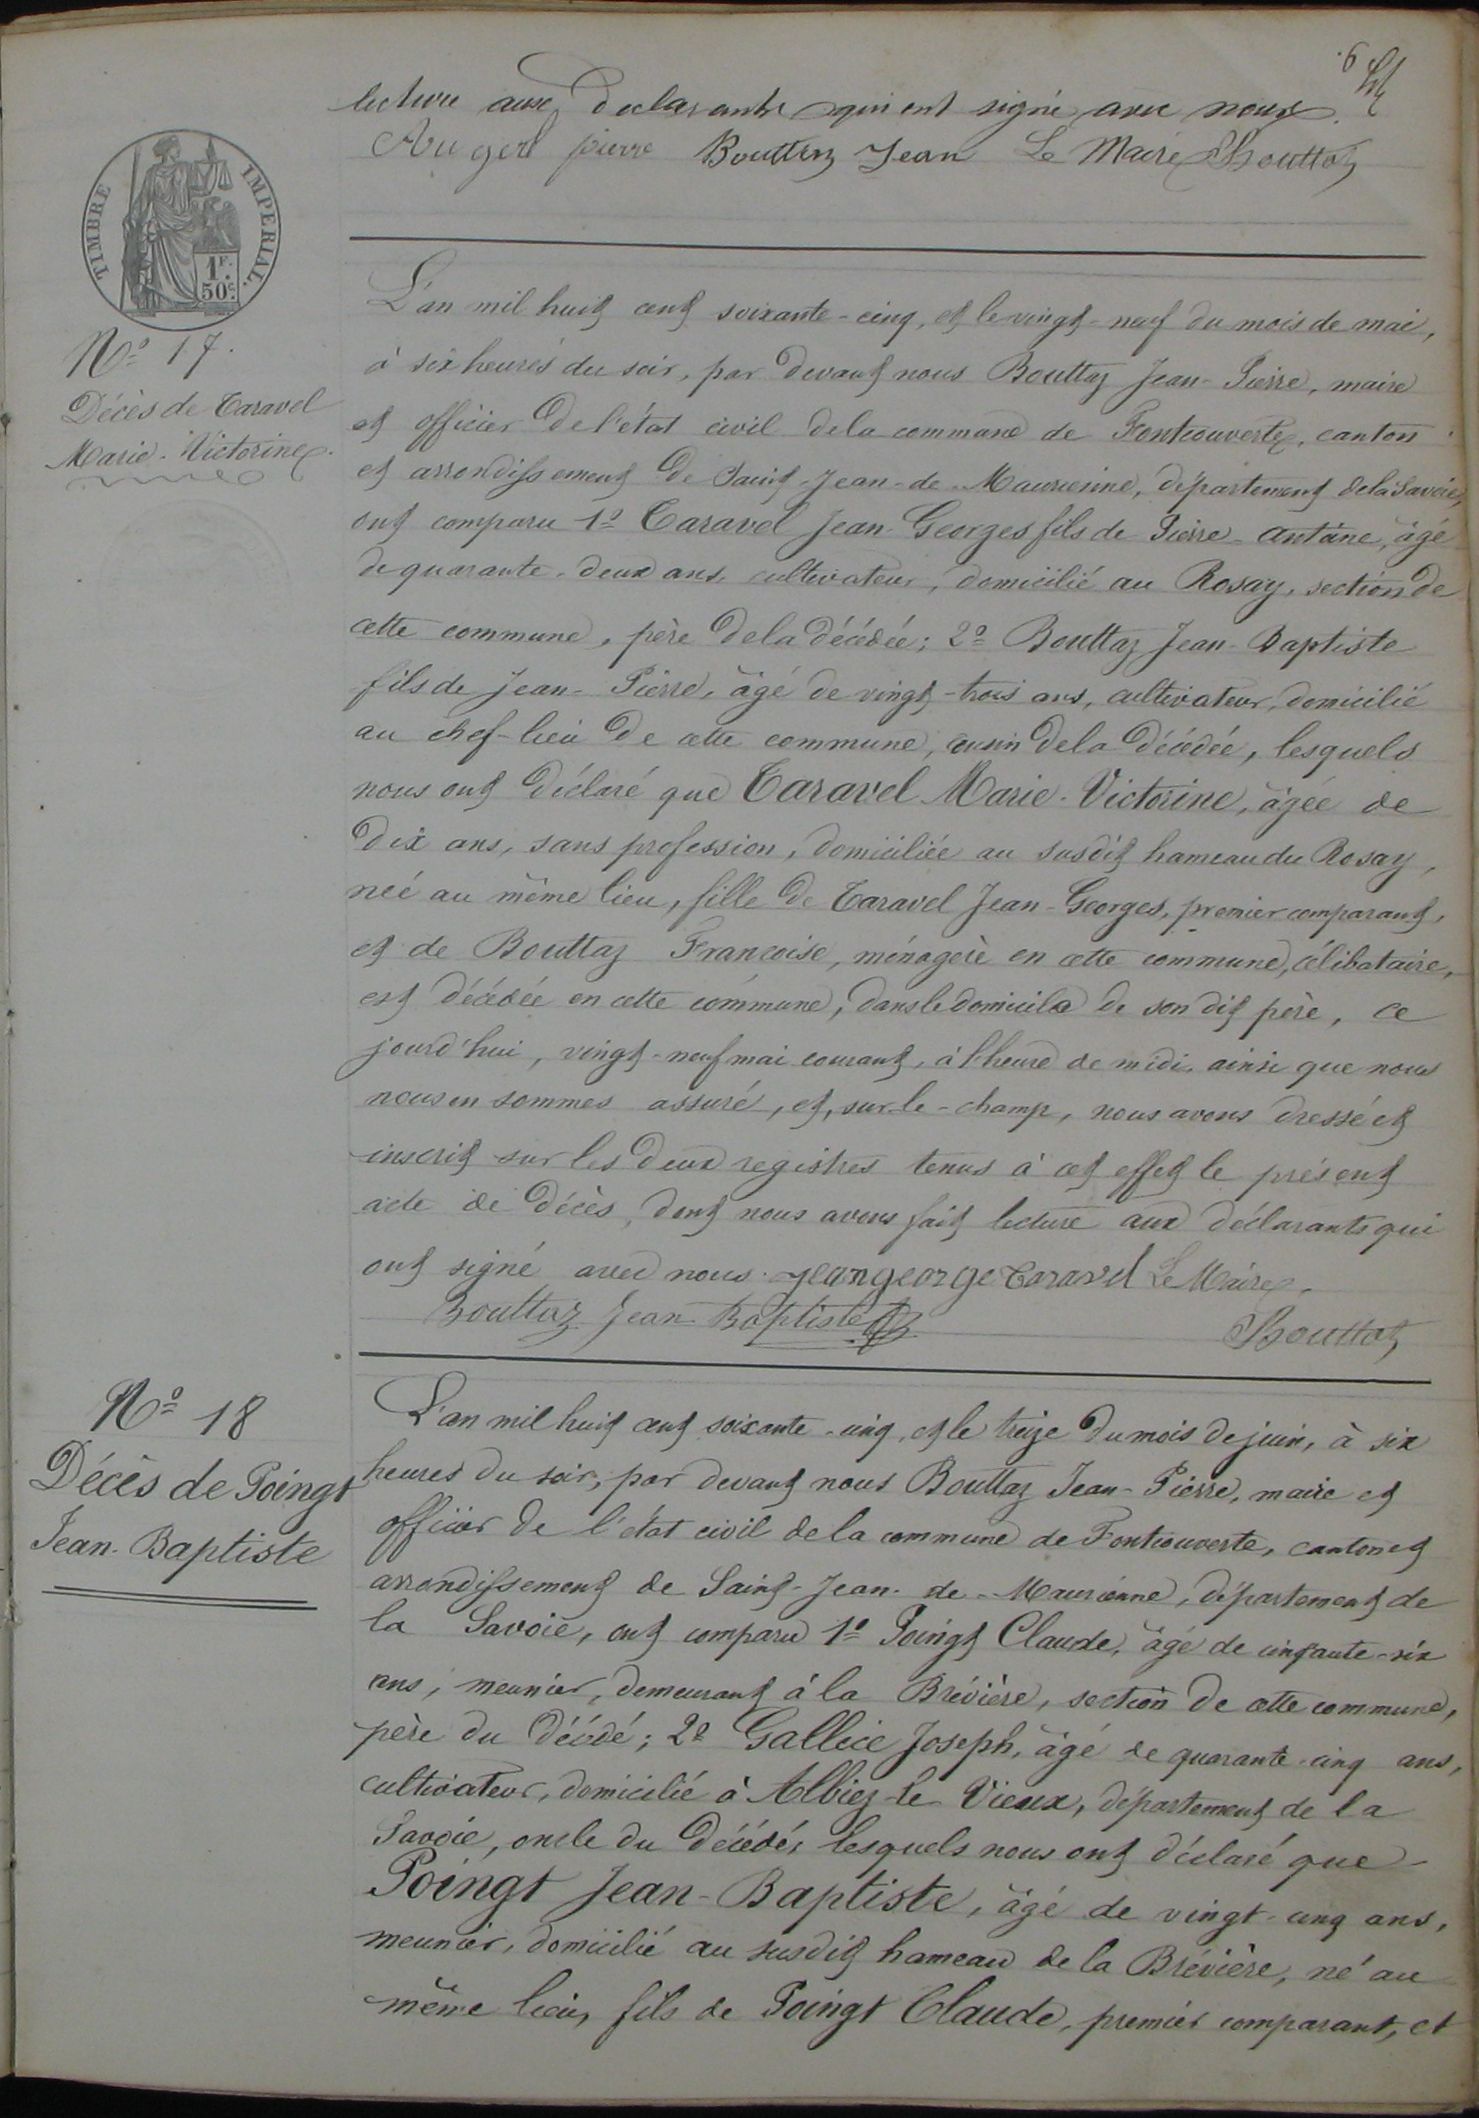 6
lecture aux déclarants qui ont signé avec nous.
Augert pierre Bouttaz Jean Le Maire Bouttaz
TIMBRE IMPERIAL
1F.
50c.
N° 17.
Décès de Taravel
Marie-Victorine.
L'an mil huit cent soixante-cinq, et le vingt-neuf du mois de mai,
à six heures du soir, par devant nous Bouttaz Jean-Pierre, maire
et officier de l'état civil de la commune de Fontcouverte, canton
et arrondissement de Saint-Jean-de-Maurienne, département de la Savoie,
ont comparu 1° Taravel Jean-Georges fils de Pierre-Antoine, âgé
de quarante-deux ans, cultivateur, domicilié au Rosay, section de
cette commune, père de la décédée; 2° Bouttaz Jean-Baptiste
fils de Jean-Pierre, âgé de vingt-trois ans, cultivateur, domicilié
au chef-lieu de cette commune, cousin de la décédée, lesquels
nous ont déclaré que Taravel Marie-Victorine, âgée de
dix ans, sans profession, domiciliée au susdit hameau du Rosay,
née au même lieu, fille de Taravel Jean-Georges, premier comparant,
et de Bouttaz Françoise, ménagère en cette commune, célibataire,
est décédée en cette commune, dans le domicile de son dit père, ce
jourd'hui, vingt-neuf mai courant, à l'heure de midi, ainsi que nous
nous en sommes assuré, et, sur-le-champ, nous avons dressé et
inscrit sur les deux registres tenus à cet effet le présent
acte de décès, dont nous avons fait lecture aux déclarants qui
ont signé avec nous. jean george Taravel Le Maire,
Bouttaz Jean Baptiste
Bouttaz
N° 18
Décès de Poingt
Jean-Baptiste
L'an mil huit cent soixante-cinq, et le treize du mois de juin, à six
heures du soir, par devant nous Bouttaz Jean-Pierre, maire et
officier de l'état civil de la commune de Fontcouverte, canton et
arrondissement de Saint-Jean-de-Maurienne, département de
la Savoie, ont comparu 1° Poingt Claude, âgé de cinquante-six
ans, meunier, demeurant à la Brévière, section de cette commune,
père du décédé; 2° Gallice Joseph, âgé de quarante-cinq ans,
cultivateur, domicilié à Albiez-le-Vieux, département de la
Savoie, oncle du décédé, lesquels nous ont déclaré que
Poingt Jean-Baptiste, âgé de vingt-cinq ans,
meunier, domicilié au susdit hameau de la Brévière, né au
même lieu, fils de Poingt Claude, premier comparant, et